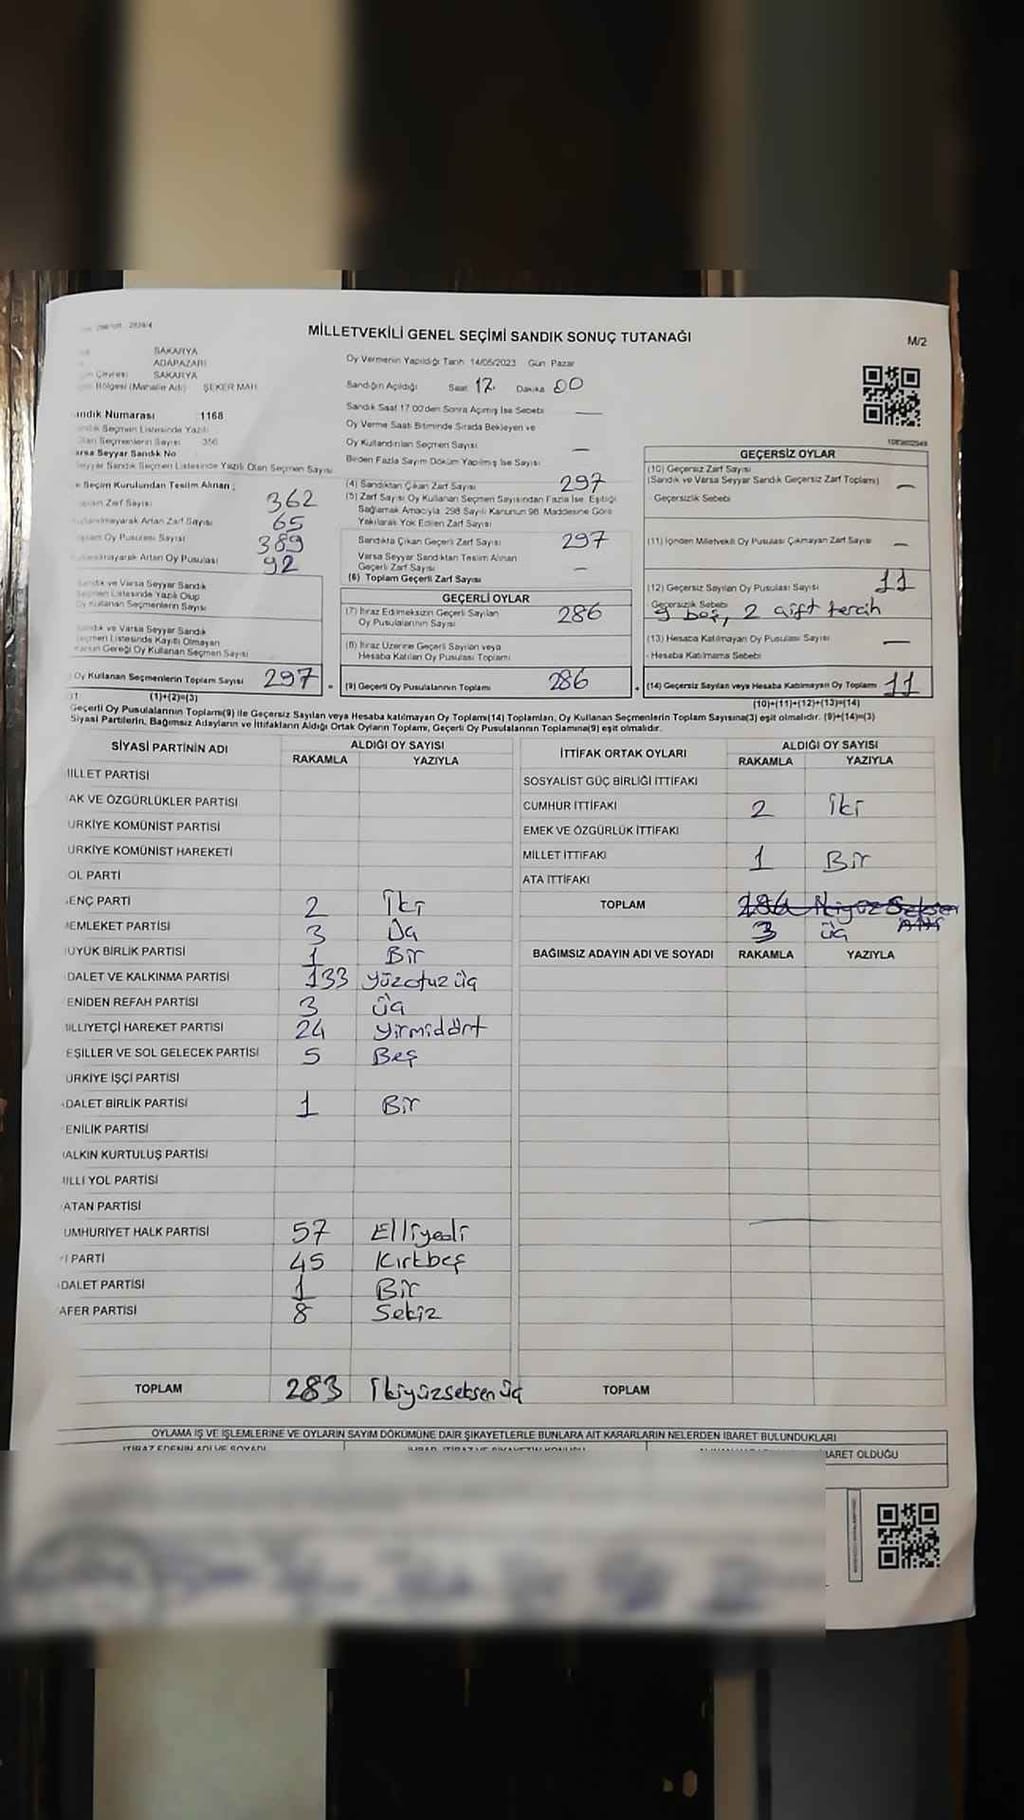 MİLLETVEKİLİ GENEL SEÇİMİ SANDIK SONUÇ TUTANAĞI
M/2
SAKARYA
ADAPAZARI
SAKARYA
Bölgesi (Mahalle Adı) ŞEKER MAH.
Oy Vermenin Yapıldığı Tarih 14/05/2023 Gün Pazar
Sandığın Açıldığı Saat 17. Dakika 00
Sandık Saat 17.00'den Sonra Açılmış İse Sebebi —
Oy Verme Saati Bitiminde Sırada Bekleyen ve
Oy Kullandırılan Seçmen Sayısı —
Birden Fazla Sayım Döküm Yapılmış İse Sayısı
andık Numarası 1168
Seçmen Listesinde Yazılı
Olan Seçmenlerin Sayısı 356
arsa Seyyar Sandık No
eyyar Sandık Seçmen Listesinde Yazılı Olan Seçmen Sayısı
e Seçim Kurulundan Teslim Alınan ;
Zarf Sayısı 362
Artan Zarf Sayısı 65
Oy Pusulası Sayısı 389
Artan Oy Pusulası 92
Sandık ve Varsa Seyyar Sandık
Seçmen Listesinde Yazılı Olup
Oy Kullanan Seçmenlerin Sayısı
andık ve Varsa Seyyar Sandık
eçmen Listesinde Kayıtlı Olmayan
Kanun Gereği Oy Kullanan Seçmen Sayısı
Oy Kullanan Seçmenlerin Toplam Sayısı 297
(1)+(2)=(3)
(4) Sandıktan Çıkan Zarf Sayısı 297
(5) Zarf Sayısı Oy Kullanan Seçmen Sayısından Fazla İse, Eşitliği
Sağlamak Amacıyla 298 Sayılı Kanunun 98. Maddesine Göre
Yakılarak Yok Edilen Zarf Sayısı
Sandıkta Çıkan Geçerli Zarf Sayısı 297
Varsa Seyyar Sandıktan Teslim Alınan
Geçerli Zarf Sayısı —
(6) Toplam Geçerli Zarf Sayısı
GEÇERLİ OYLAR
(7) İtiraz Edilmeksizin Geçerli Sayılan
Oy Pusulalarının Sayısı 286
(8) İtiraz Üzerine Geçerli Sayılan veya
Hesaba Katılan Oy Pusulası Toplamı
(9) Geçerli Oy Pusulalarının Toplamı 286
GEÇERSİZ OYLAR
(10) Geçersiz Zarf Sayısı
(Sandık ve Varsa Seyyar Sandık Geçersiz Zarf Toplamı) —
Geçersizlik Sebebi
(11) İçinden Milletvekili Oy Pusulası Çıkmayan Zarf Sayısı —
(12) Geçersiz Sayılan Oy Pusulası Sayısı 11
Geçersizlik Sebebi 9 boş, 2 çift tercih
(13) Hesaba Katılmayan Oy Pusulası Sayısı —
Hesaba Katılmama Sebebi
(14) Geçersiz Sayılan veya Hesaba Katılmayan Oy Toplamı 11
(10)+(11)+(12)+(13)=(14)
Geçerli Oy Pusulalarının Toplamı(9) ile Geçersiz Sayılan veya Hesaba katılmayan Oy Toplamı(14) Toplamları, Oy Kullanan Seçmenlerin Toplam Sayısına(3) eşit olmalıdır. (9)+(14)=(3)
Siyasi Partilerin, Bağımsız Adayların ve İttifakların Aldığı Ortak Oyların Toplamı, Geçerli Oy Pusulalarının Toplamına(9) eşit olmalıdır.
SİYASİ PARTİNİN ADI ALDIĞI OY SAYISI
RAKAMLA YAZIYLA
İLLET PARTİSİ
AK VE ÖZGÜRLÜKLER PARTİSİ
ÜRKİYE KOMÜNİST PARTİSİ
ÜRKİYE KOMÜNİST HAREKETİ
OL PARTİ
ENÇ PARTİ 2 İki
EMLEKET PARTİSİ 3 Üç
ÜYÜK BİRLİK PARTİSİ 1 Bir
DALET VE KALKINMA PARTİSİ 133 yüzotuzüç
ENİDEN REFAH PARTİSİ 3 üç
İLLİYETÇİ HAREKET PARTİSİ 24 yirmidört
EŞİLLER VE SOL GELECEK PARTİSİ 5 Beş
ÜRKİYE İŞÇİ PARTİSİ
DALET BİRLİK PARTİSİ 1 Bir
ENİLİK PARTİSİ
ALKIN KURTULUŞ PARTİSİ
İLLİ YOL PARTİSİ
ATAN PARTİSİ
UMHURİYET HALK PARTİSİ 57 Elliyedi
İ PARTİ 45 Kırkbeş
DALET PARTİSİ 1 Bir
AFER PARTİSİ 8 Sekiz
TOPLAM 283 İkiyüzseksenüç
İTTİFAK ORTAK OYLARI ALDIĞI OY SAYISI
RAKAMLA YAZIYLA
SOSYALİST GÜÇ BİRLİĞİ İTTİFAKI
CUMHUR İTTİFAKI 2 İki
EMEK VE ÖZGÜRLÜK İTTİFAKI
MİLLET İTTİFAKI 1 Bir
ATA İTTİFAKI
TOPLAM 286 İkiyüz Seksen Altı
3 üç
BAĞIMSIZ ADAYIN ADI VE SOYADI RAKAMLA YAZIYLA
TOPLAM
OYLAMA İŞ VE İŞLEMLERİNE VE OYLARIN SAYIM DÖKÜMÜNE DAİR ŞİKAYETLERLE BUNLARA AİT KARARLARIN NELERDEN İBARET BULUNDUKLARI
İTİRAZ EDENİN ADI VE SOYADI
BARET OLDUĞU